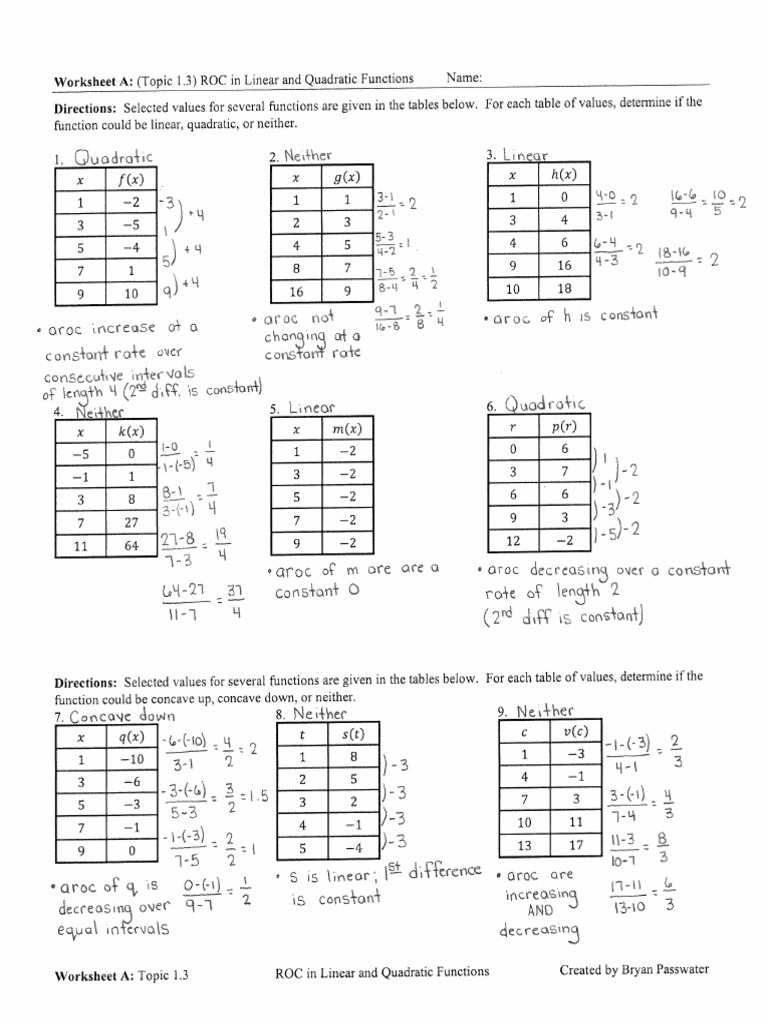 Worksheet A: (Topic 1.3) ROC in Linear and Quadratic Functions Name:
Directions: Selected values for several functions are given in the tables below. For each table of values, determine if the
function could be linear, quadratic, or neither.
1. Quadratic
x f(x)
1 −2
3 −5
5 −4
7 1
9 10
-3
1
5
9
+4
+4
+4
• aroc increase at a
constant rate over
consecutive intervals
of length 4 (2nd diff. is constant)
2. Neither
x g(x)
1 1
2 3
4 5
8 7
16 9
3-1/2-1 = 2
5-3/4-2 = 1
7-5/8-4 = 2/4 = 1/2
9-7/16-8 = 2/8 = 1/4
• aroc not
changing at a
constant rate
3. Linear
x h(x)
1 0
3 4
4 6
9 16
10 18
4-0/3-1 = 2
6-4/4-3 = 2
16-6/9-4 = 10/5 = 2
18-16/10-9 = 2
• aroc of h is constant
4. Neither
x k(x)
−5 0
−1 1
3 8
7 27
11 64
1-0/-1-(-5) = 1/4
8-1/3-(-1) = 7/4
27-8/7-3 = 19/4
64-27/11-7 = 37/4
5. Linear
x m(x)
1 −2
3 −2
5 −2
7 −2
9 −2
• aroc of m are are a
constant 0
6. Quadratic
r p(r)
0 6
3 7
6 6
9 3
12 −2
1
-1
-3
-5
-2
-2
-2
• aroc decreasing over a constant
rate of length 2
(2nd diff is constant)
Directions: Selected values for several functions are given in the tables below. For each table of values, determine if the
function could be concave up, concave down, or neither.
7. Concave down
x q(x)
1 −10
3 −6
5 −3
7 −1
9 0
-6-(-10)/3-1 = 4/2 = 2
-3-(-6)/5-3 = 3/2 = 1.5
-1-(-3)/7-5 = 2/2 = 1
0-(-1)/9-7 = 1/2
• aroc of q is
decreasing over
equal intervals
8. Neither
t s(t)
1 8
2 5
3 2
4 −1
5 −4
-3
-3
-3
-3
• s is linear; 1st difference
is constant
9. Neither
c v(c)
1 −3
4 −1
7 3
10 11
13 17
-1-(-3)/4-1 = 2/3
3-(-1)/7-4 = 4/3
11-3/10-7 = 8/3
17-11/13-10 = 6/3
• aroc are
increasing
AND
decreasing
Worksheet A: Topic 1.3 ROC in Linear and Quadratic Functions Created by Bryan Passwater